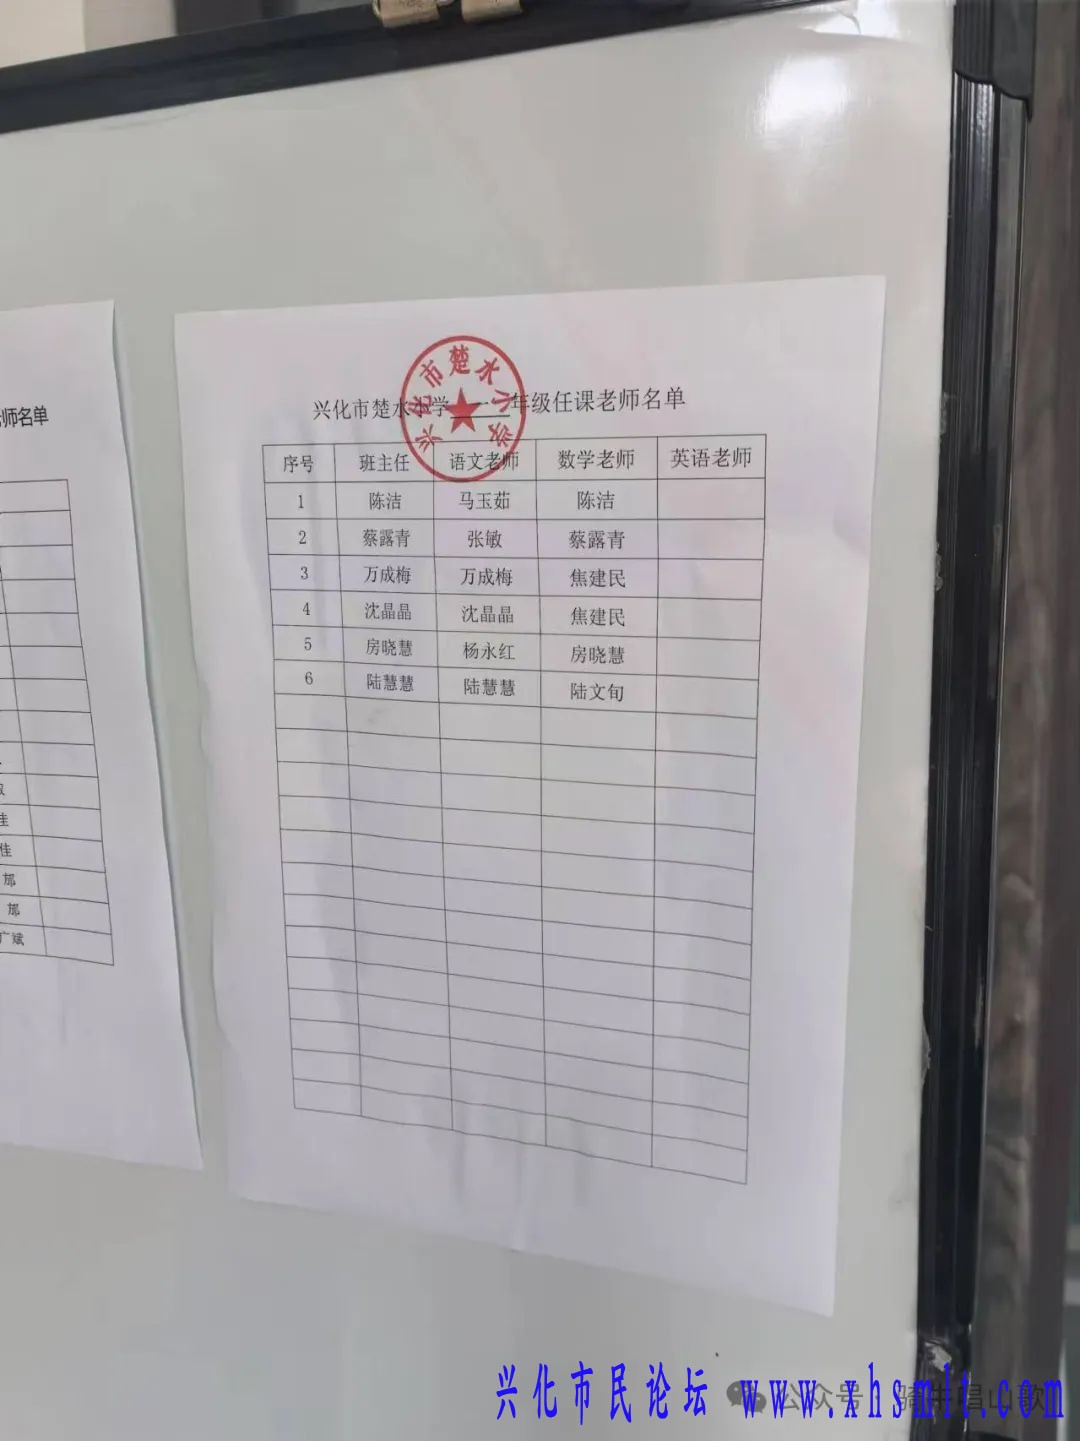 师名单
佳
佳
邴
邴
广斌
兴化市楚水小学
兴化市楚水小学 一 年级任课老师名单
序号 班主任 语文老师 数学老师 英语老师
1 陈洁 马玉茹 陈洁
2 蔡露青 张敏 蔡露青
3 万成梅 万成梅 焦建民
4 沈晶晶 沈晶晶 焦建民
5 房晓慧 杨永红 房晓慧
6 陆慧慧 陆慧慧 陆文旬
兴化市民论坛 www.xhsmlt.com
公众号 骑牛唱山歌